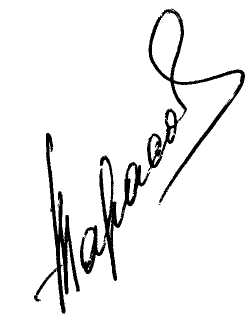 Тарасов